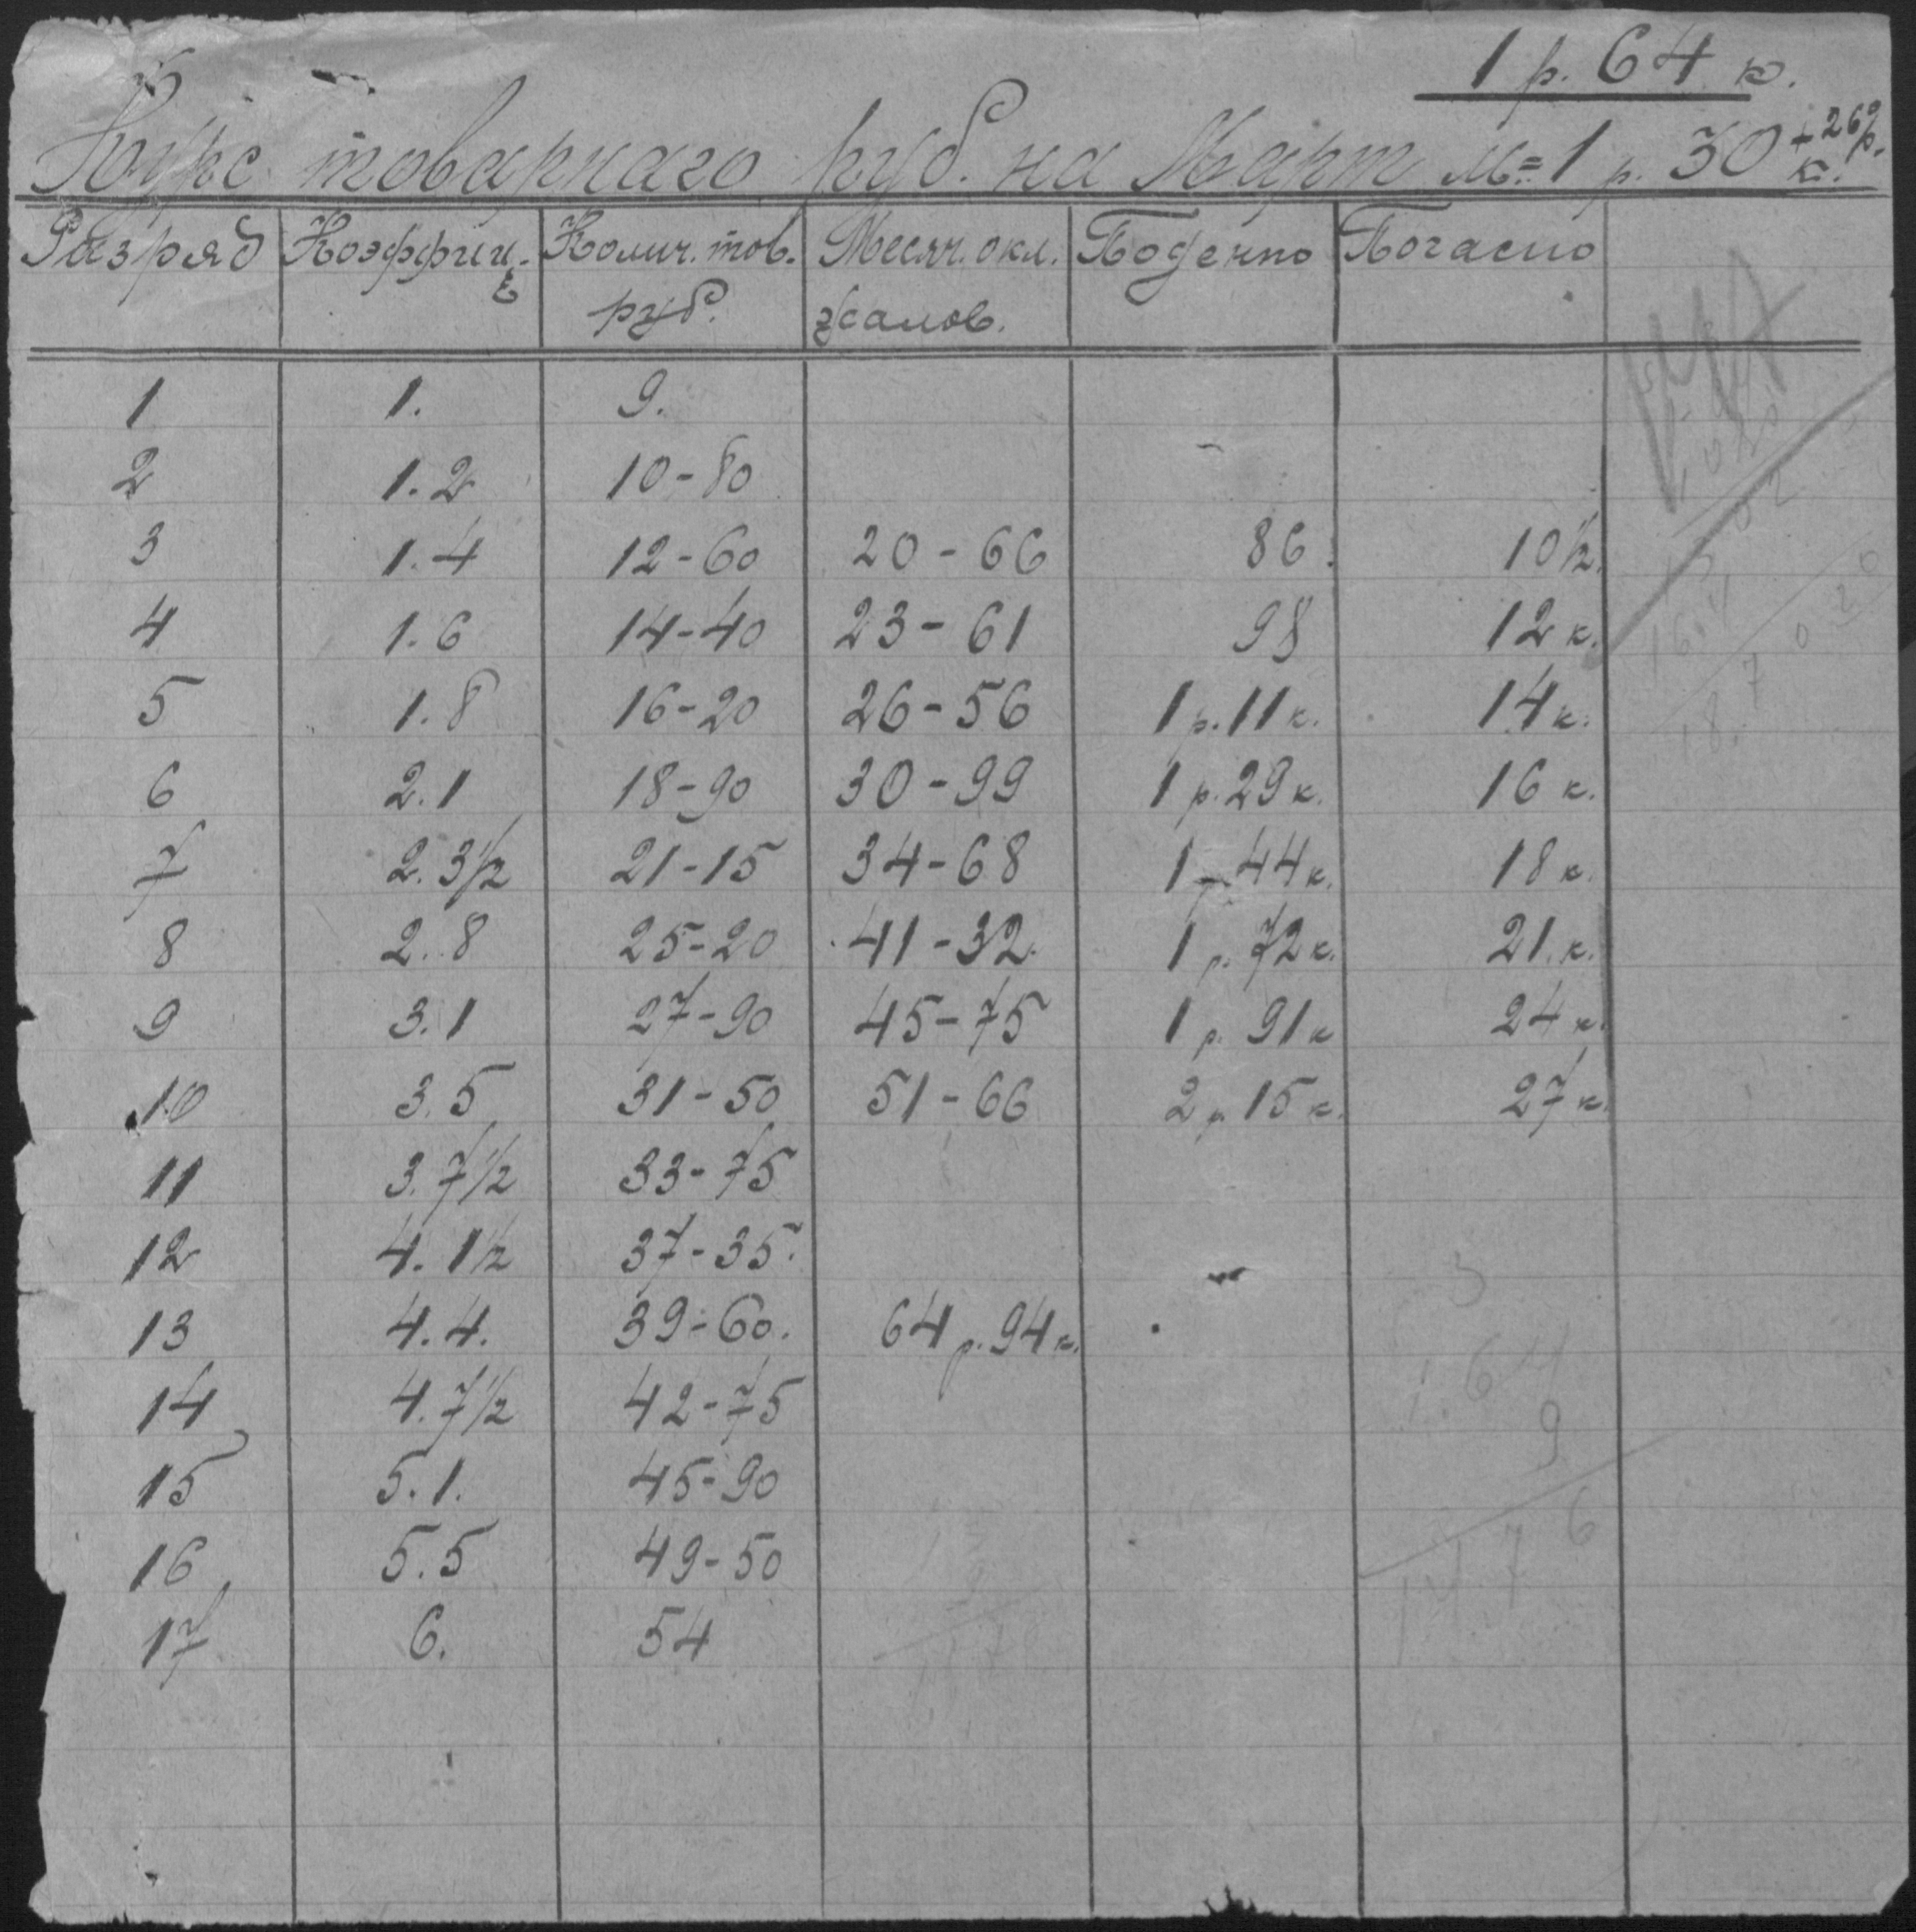 1 р. 64 к.
Курс товарнаго руб. на Март м= 1 р. 30 к. + 26%
Разряд Коэффиц. Колич. тов. Месяч. окл. Поденно Почасно
руб. жалов.
1 1. 9.
2 1.2 10-80
3 1.4 12-60 20-66 86. 10½.
4 1.6 14-40 23-61 98 12 к.
5 1.8 16-20 26-56 1 р. 11 к. 14 к.
6 2.1 18-90 30-99 1 р. 29 к. 16 к.
7 2.3½ 21-15 34-68 1 р. 44 к. 18 к.
8 2.8 25-20 41-32. 1 р. 72 к. 21. к.
9 3.1 27-90 45-75 1 р. 91 к 24 к.
10 3.5 31-50 51-66 2 р. 15 к. 27 к.
11 3.7½ 33-75
12 4.1½ 37-35.
13 4.4. 39-60. 64 р. 94 к.
14 4.7½ 42-75
15 5.1. 45-90
16 5.5 49-50
17 6. 54
3
1.64
9
14 7 6